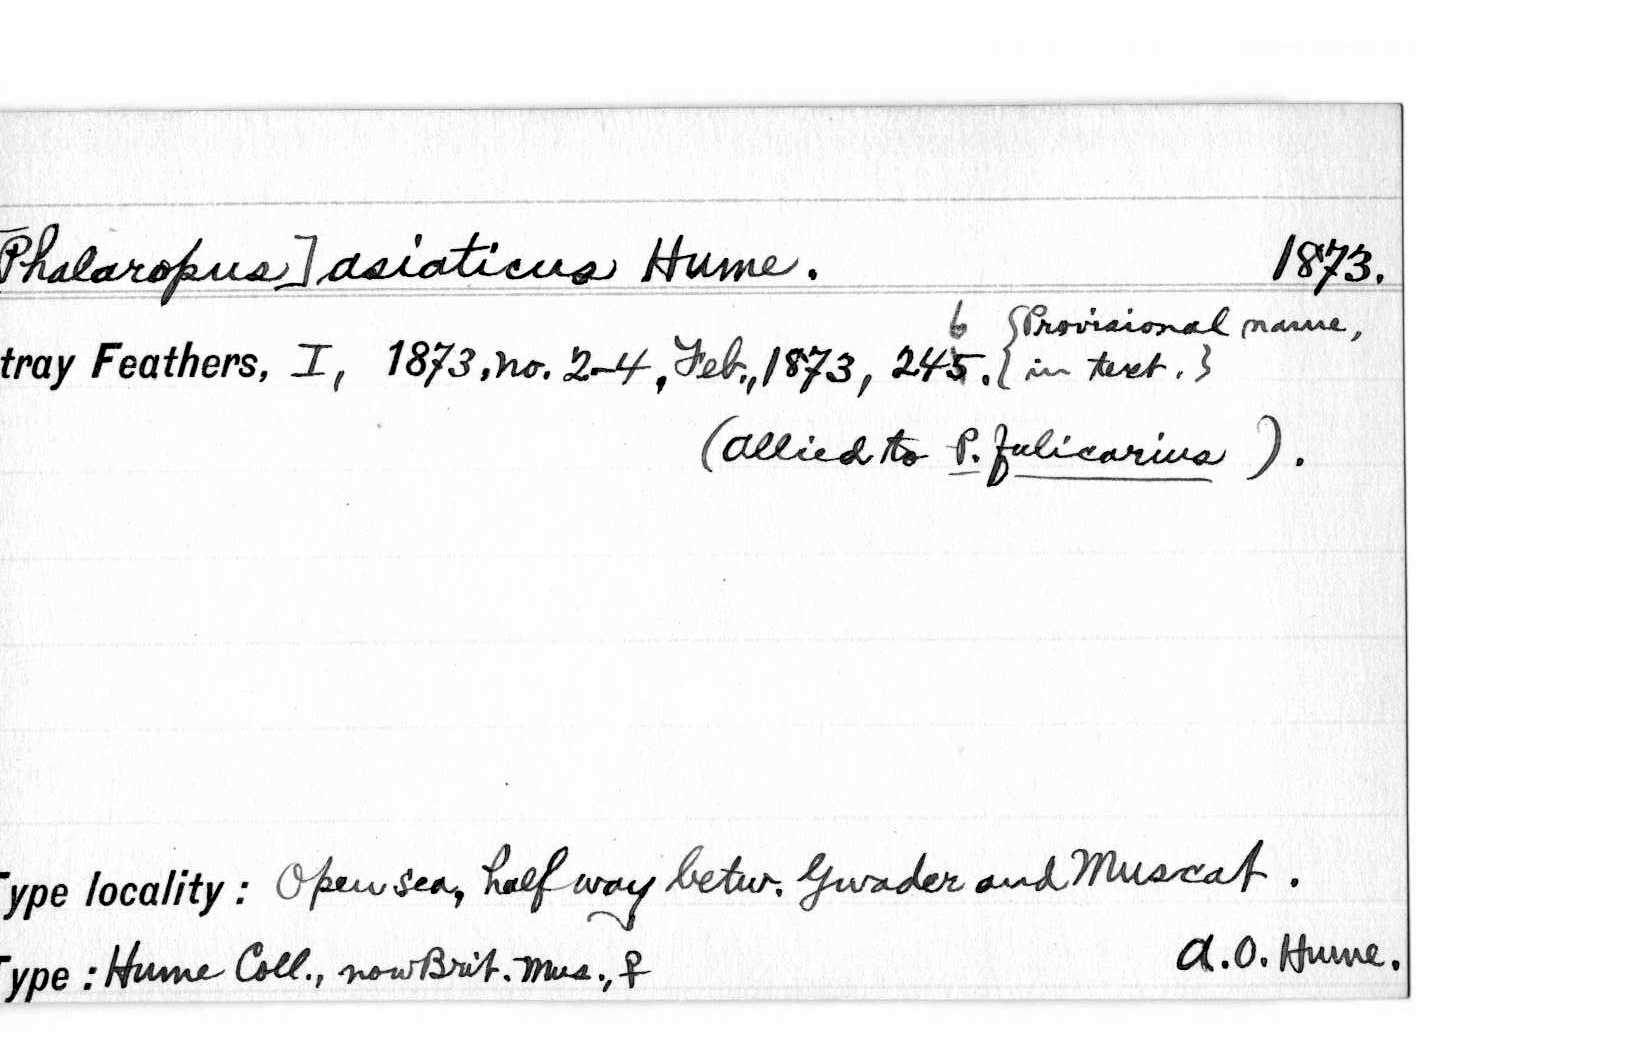 Phalaropus] asiaticus Hume. 1873.
tray Feathers, I, 1873, no. 2-4, Feb., 1873, 245. 6 {Provisional name, in text.}
(Allied to P. fulicarius).
Type locality: Open sea, half way betw. Gwader and Muscat.
Type: Hume Coll., now Brit. Mus., ♀ A.O. Hume.